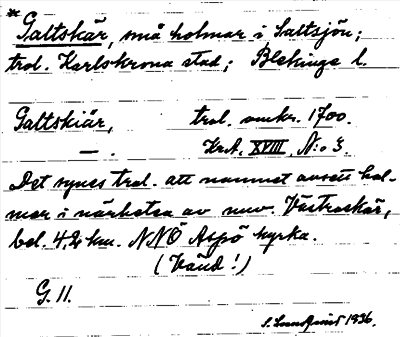 * Galtskär, små holmar i Saltsjön;
trol. Karlskrona stad; Blekinge l.
Galtskiär, trol. omkr. 1700.
— . Kr.A. XVIII, N:o 3.
Det synes trol. att namnet avsett hol-
mar i närheten av nuv. Västraskär,
bel. 4,2 km. NNÖ Aspö kyrka.
(Vänd!)
G. 11.
S. Lundqvist 1936.